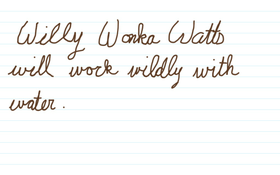 Willy Wonka Watts
will work wildly with
water.